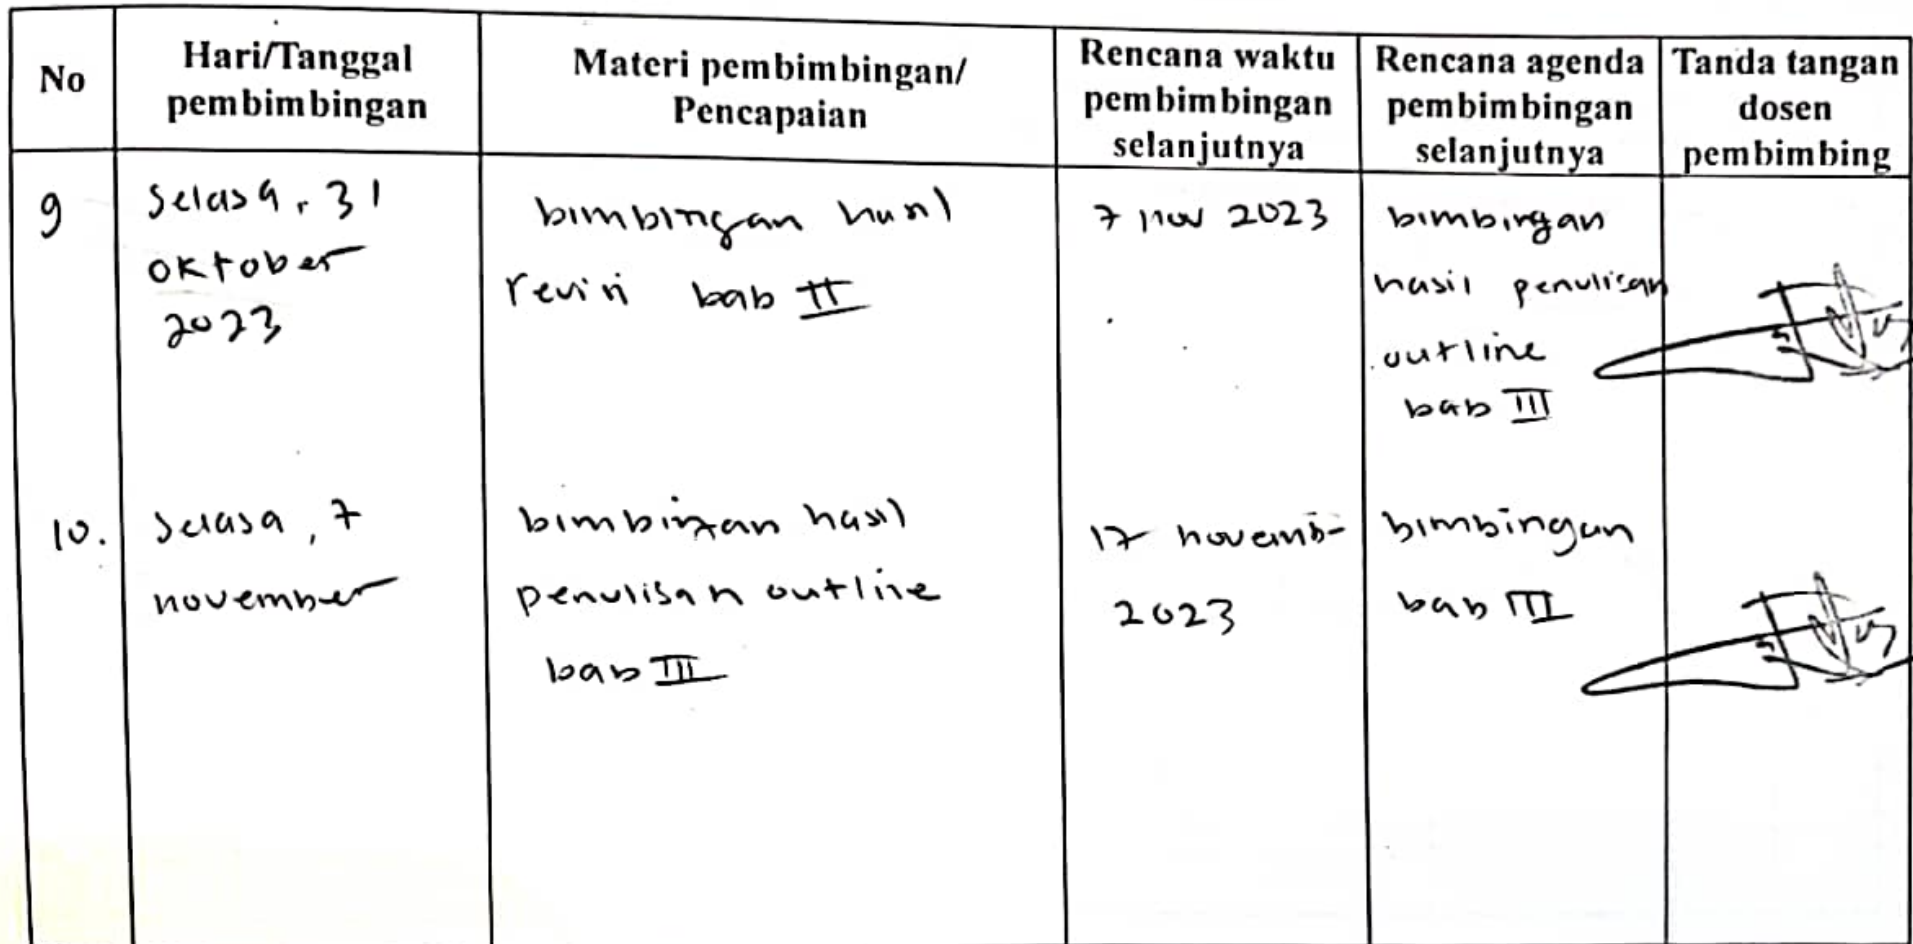 No
Hari/Tanggal
pembimbingan
Materi pembimbingan/
Pencapaian
Rencana waktu
pembimbingan
selanjutnya
Rencana agenda
pembimbingan
selanjutnya
Tanda tangan
dosen
pembimbing
9
Selasa, 31
oktober
2023
bimbingan hasil
revisi bab II
7 nov 2023
bimbingan
hasil penulisan
outline
bab III
10.
Selasa, 7
november
bimbingan hasil
penulisan outline
bab III
17 novemb-
2023
bimbingan
bab III